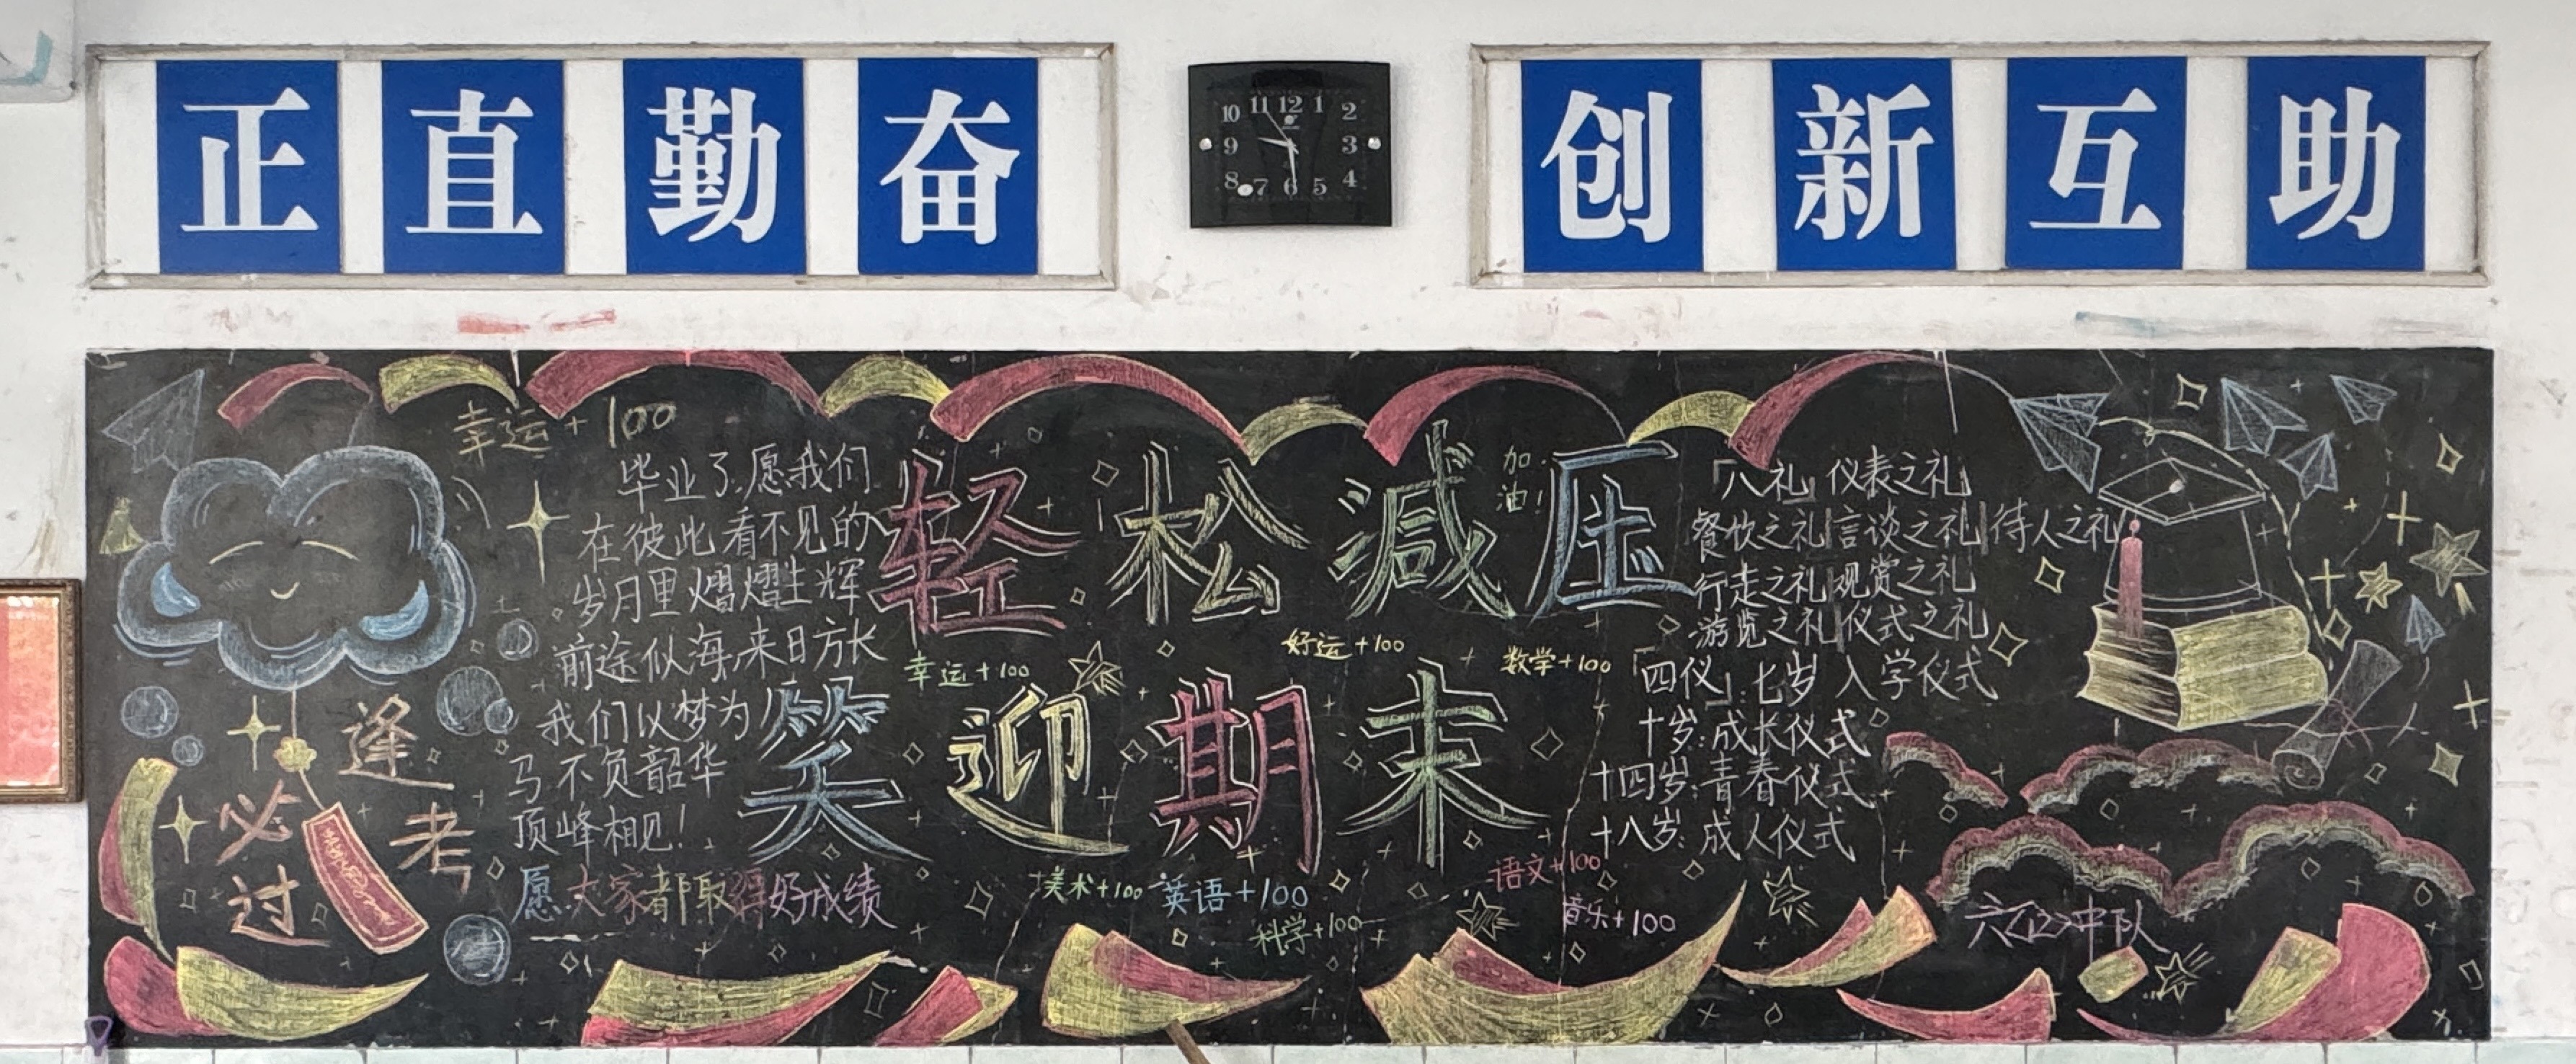 正直勤奋
创新互助
10 11 12 1 2
9 3
8 7 6 5 4
幸运+100
毕业了,愿我们
在彼此看不见的
岁月里熠熠生辉
前途似海,来日方长
我们以梦为
马不负韶华
顶峰相见!
愿大家都取得好成绩
逢考
必过
轻松减压
加油!
幸运+100
好运+100
数学+100
笑迎期末
美术+100
英语+100
科学+100
语文+100
音乐+100
「八礼」仪表之礼
餐饮之礼|言谈之礼|待人之礼
行走之礼|观赏之礼
游览之礼|仪式之礼
「四仪」:七岁入学仪式
十岁:成长仪式
十四岁:青春仪式
十八岁:成人仪式
六<2>中队